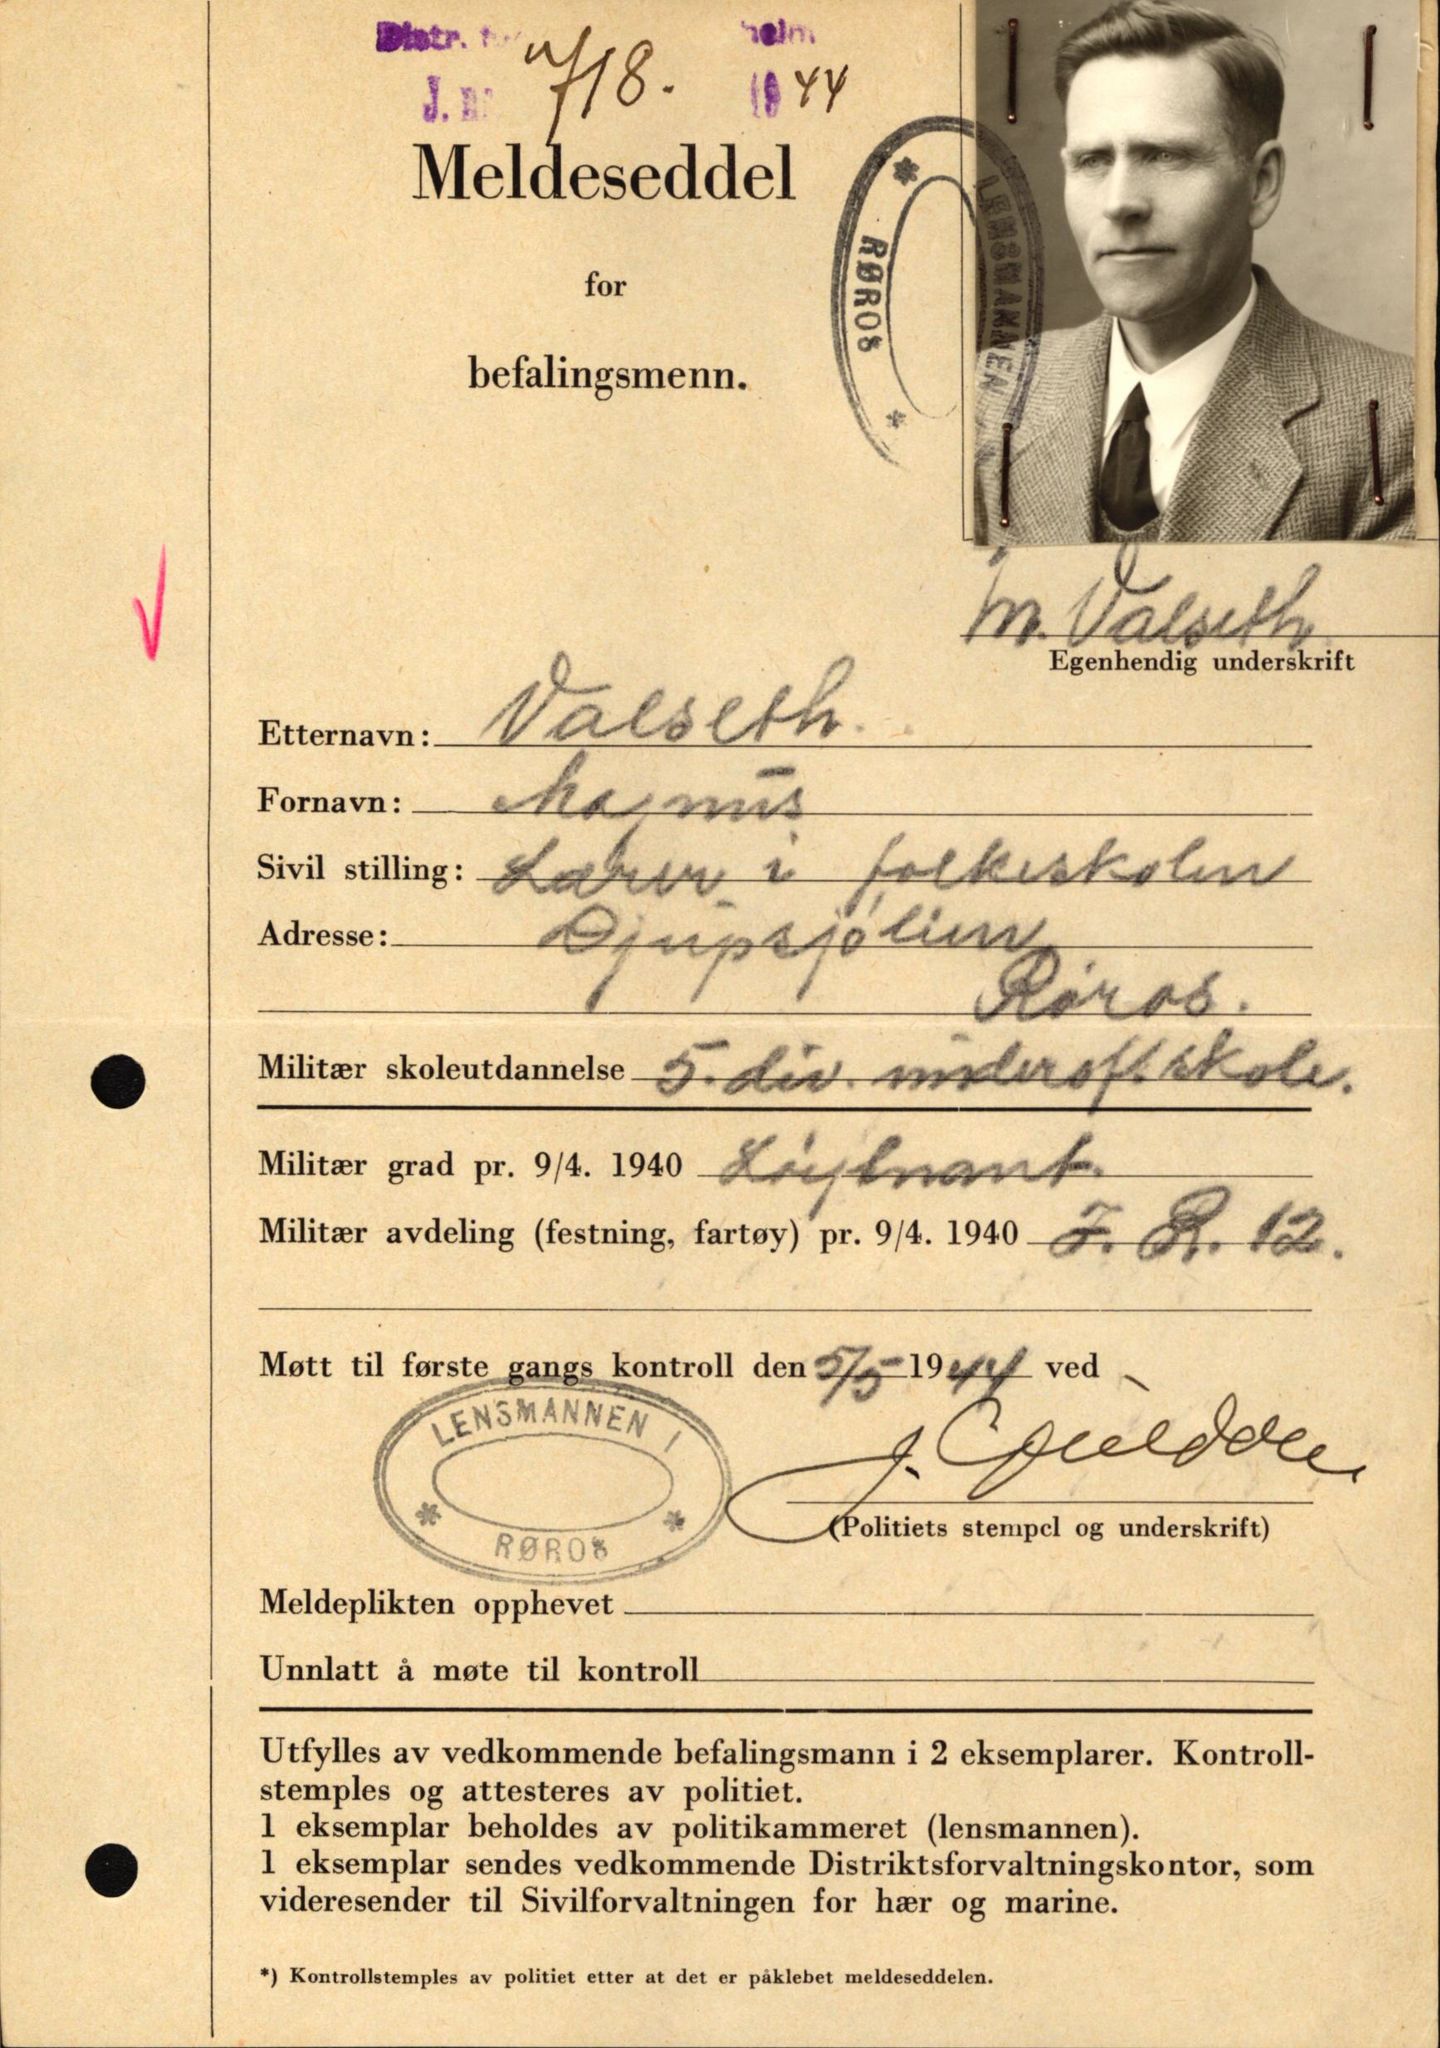 Distr. heim
J. 718. 1944
Meldeseddel
for
befalingsmenn.
LENSMANNEN
RØROS
M. Valseth
Egenhendig underskrift
Etternavn: Valseth.
Fornavn: Magnus
Sivil stilling: Lærer i folkeskolen
Adresse: Djupsjölien
Røros.
Militær skoleutdannelse 5. div. underof. skole.
Militær grad pr. 9/4. 1940 Löytnant.
Militær avdeling (festning, fartøy) pr. 9/4. 1940 I. R. 12.
Møtt til første gangs kontroll den 5/5 1944 ved
LENSMANNEN I
RØROS
(Politiets stempel og underskrift)
Meldeplikten opphevet
Unnlatt å møte til kontroll
Utfylles av vedkommende befalingsmann i 2 eksemplarer. Kontroll-
stemples og attesteres av politiet.
1 eksemplar beholdes av politikammeret (lensmannen).
1 eksemplar sendes vedkommende Distriktsforvaltningskontor, som
videresender til Sivilforvaltningen for hær og marine.
*) Kontrollstemples av politiet etter at det er påklebet meldeseddelen.